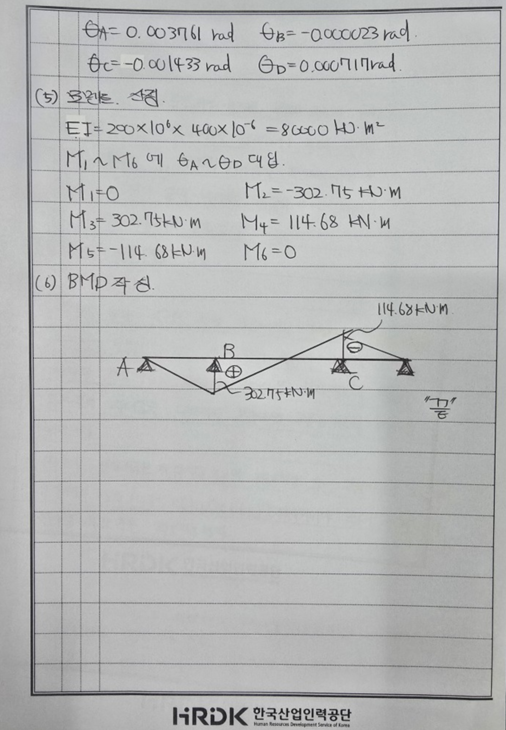 θA= 0.003761 rad θB= -0.000023 rad.
θC= -0.001433 rad θD= 0.000717 rad.
(5) 모멘트 산정.
EI= 200×10⁶× 400×10⁻⁶ = 80000 kN·m²
M₁~M₆ 에 θA~θD 대입.
M₁=0 M₂= -302.75 kN·m
M₃= 302.75kN·m M₄= 114.68 kN·m
M₅= -114.68kN·m M₆=0
(6) BMD 작성.
114.68kN·m
A B ⊕ ⊖ C
302.75kN·m
"끝"
HRDK 한국산업인력공단
Human Resources Development Service of Korea